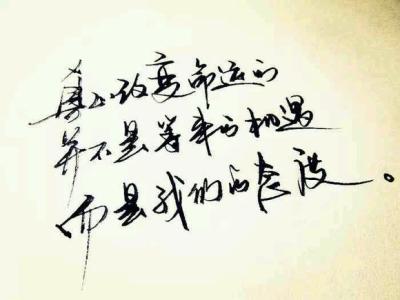 真正改变命运的
并不是等来的机遇
而是我们的态度。